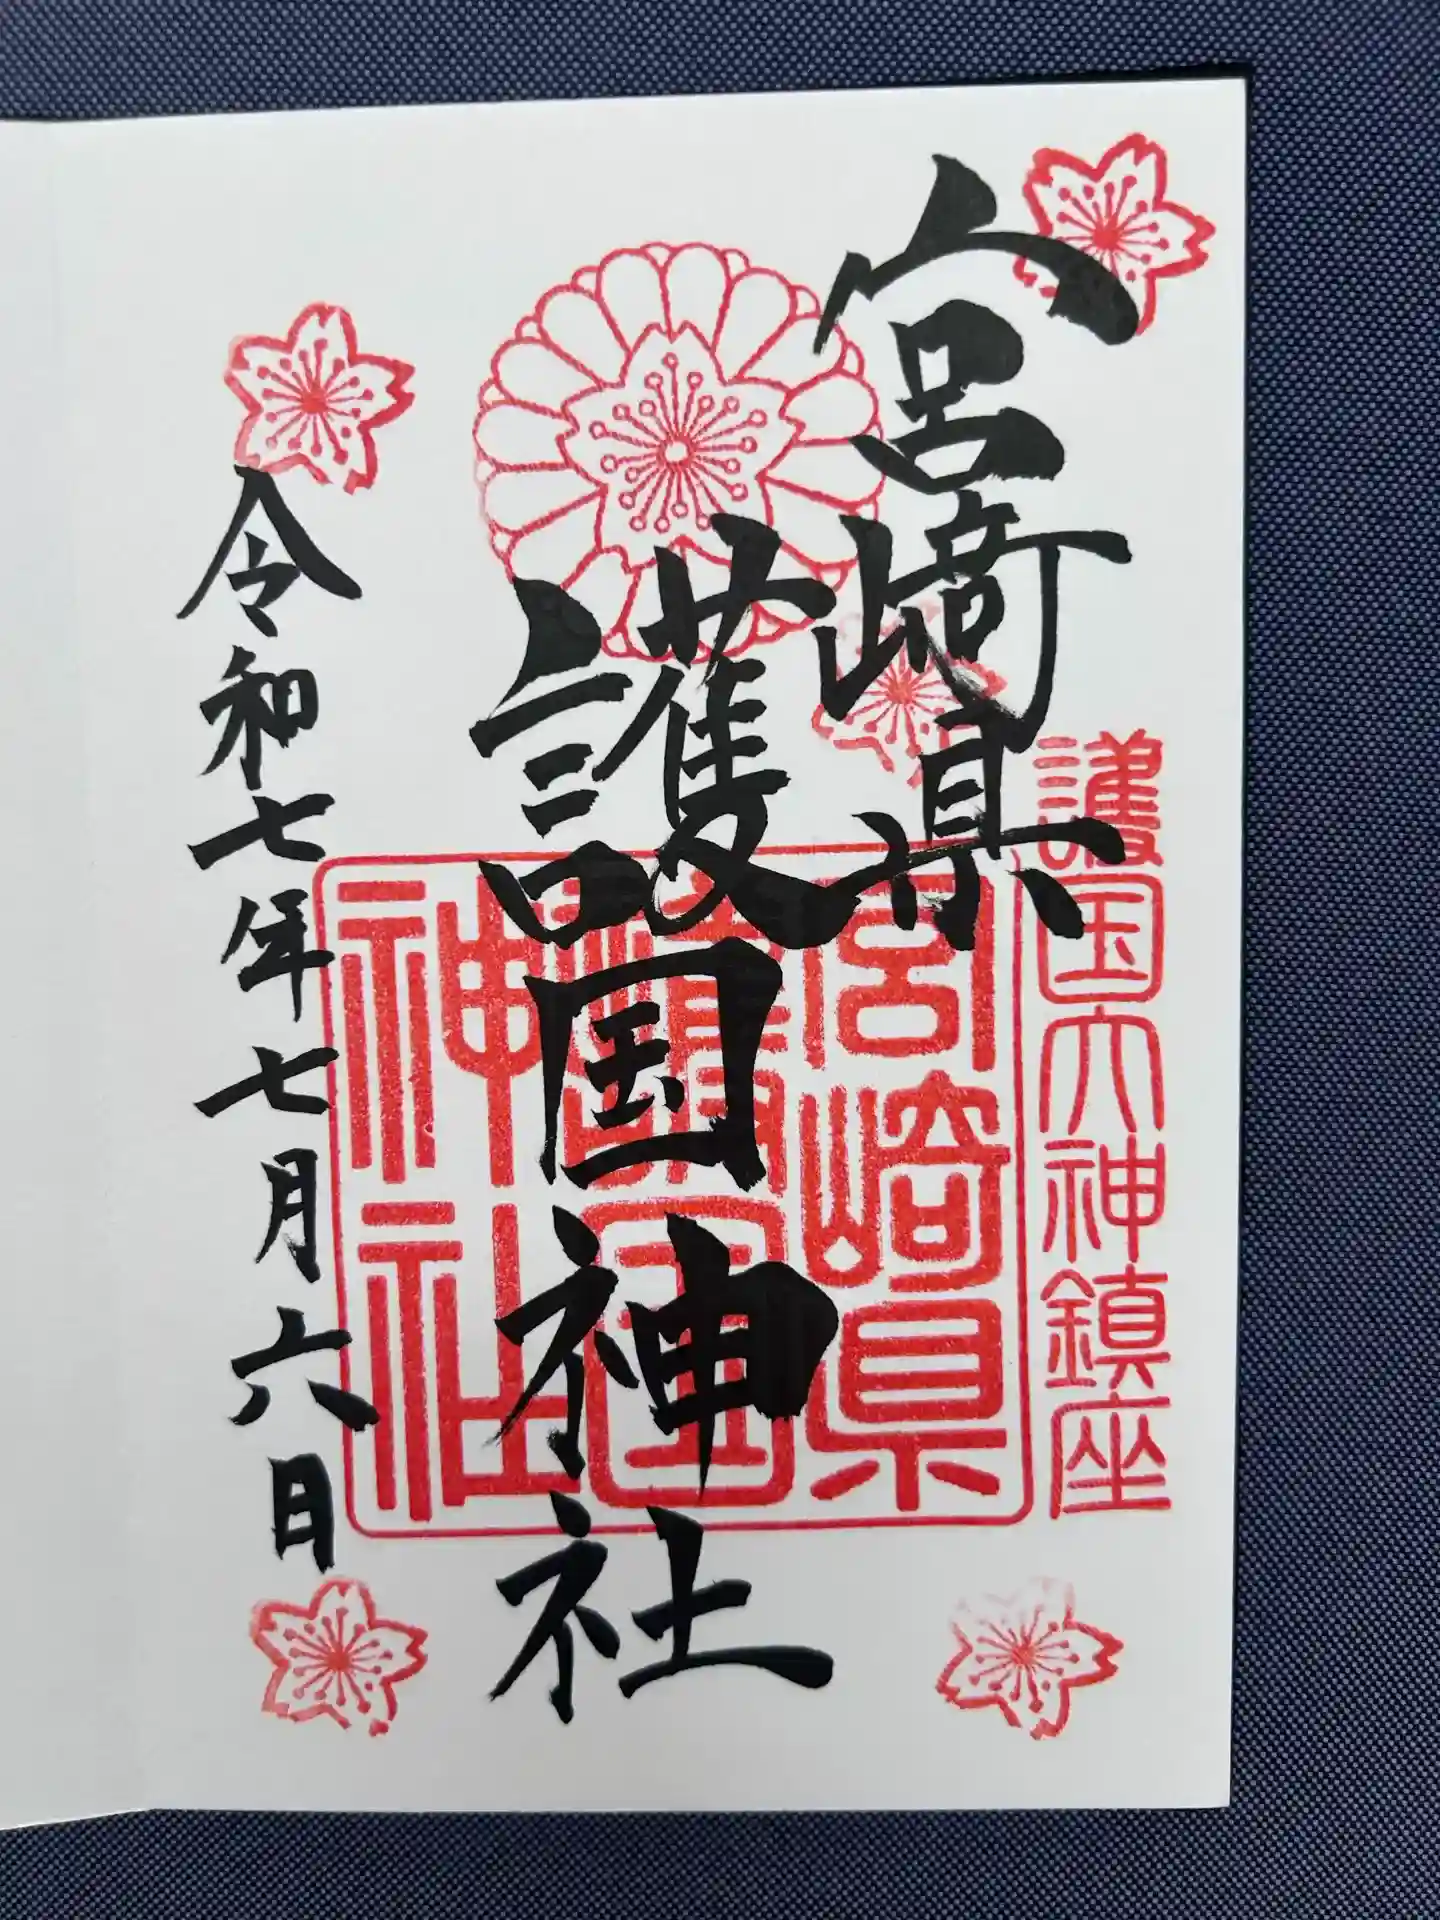 宮﨑県
護国神社
令和七年七月六日
護国大神鎮座
宮崎県
護国
神社